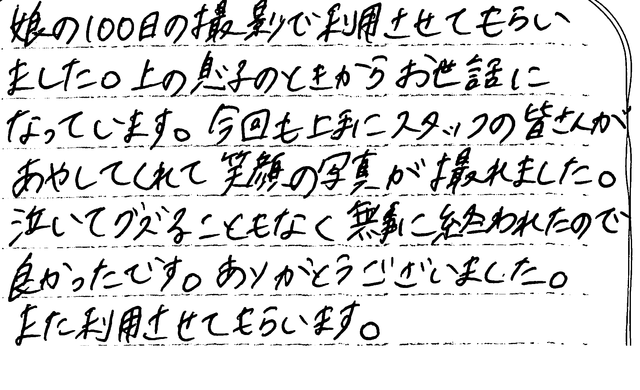 娘の100日の撮影で利用させてもらい
ました。上の息子のときからお世話に
なっています。今回も上手にスタッフの皆さんが
あやしてくれて笑顔の写真が撮れました。
泣いてグズることもなく無事に終われたので
良かったです。ありがとうございました。
また利用させてもらいます。